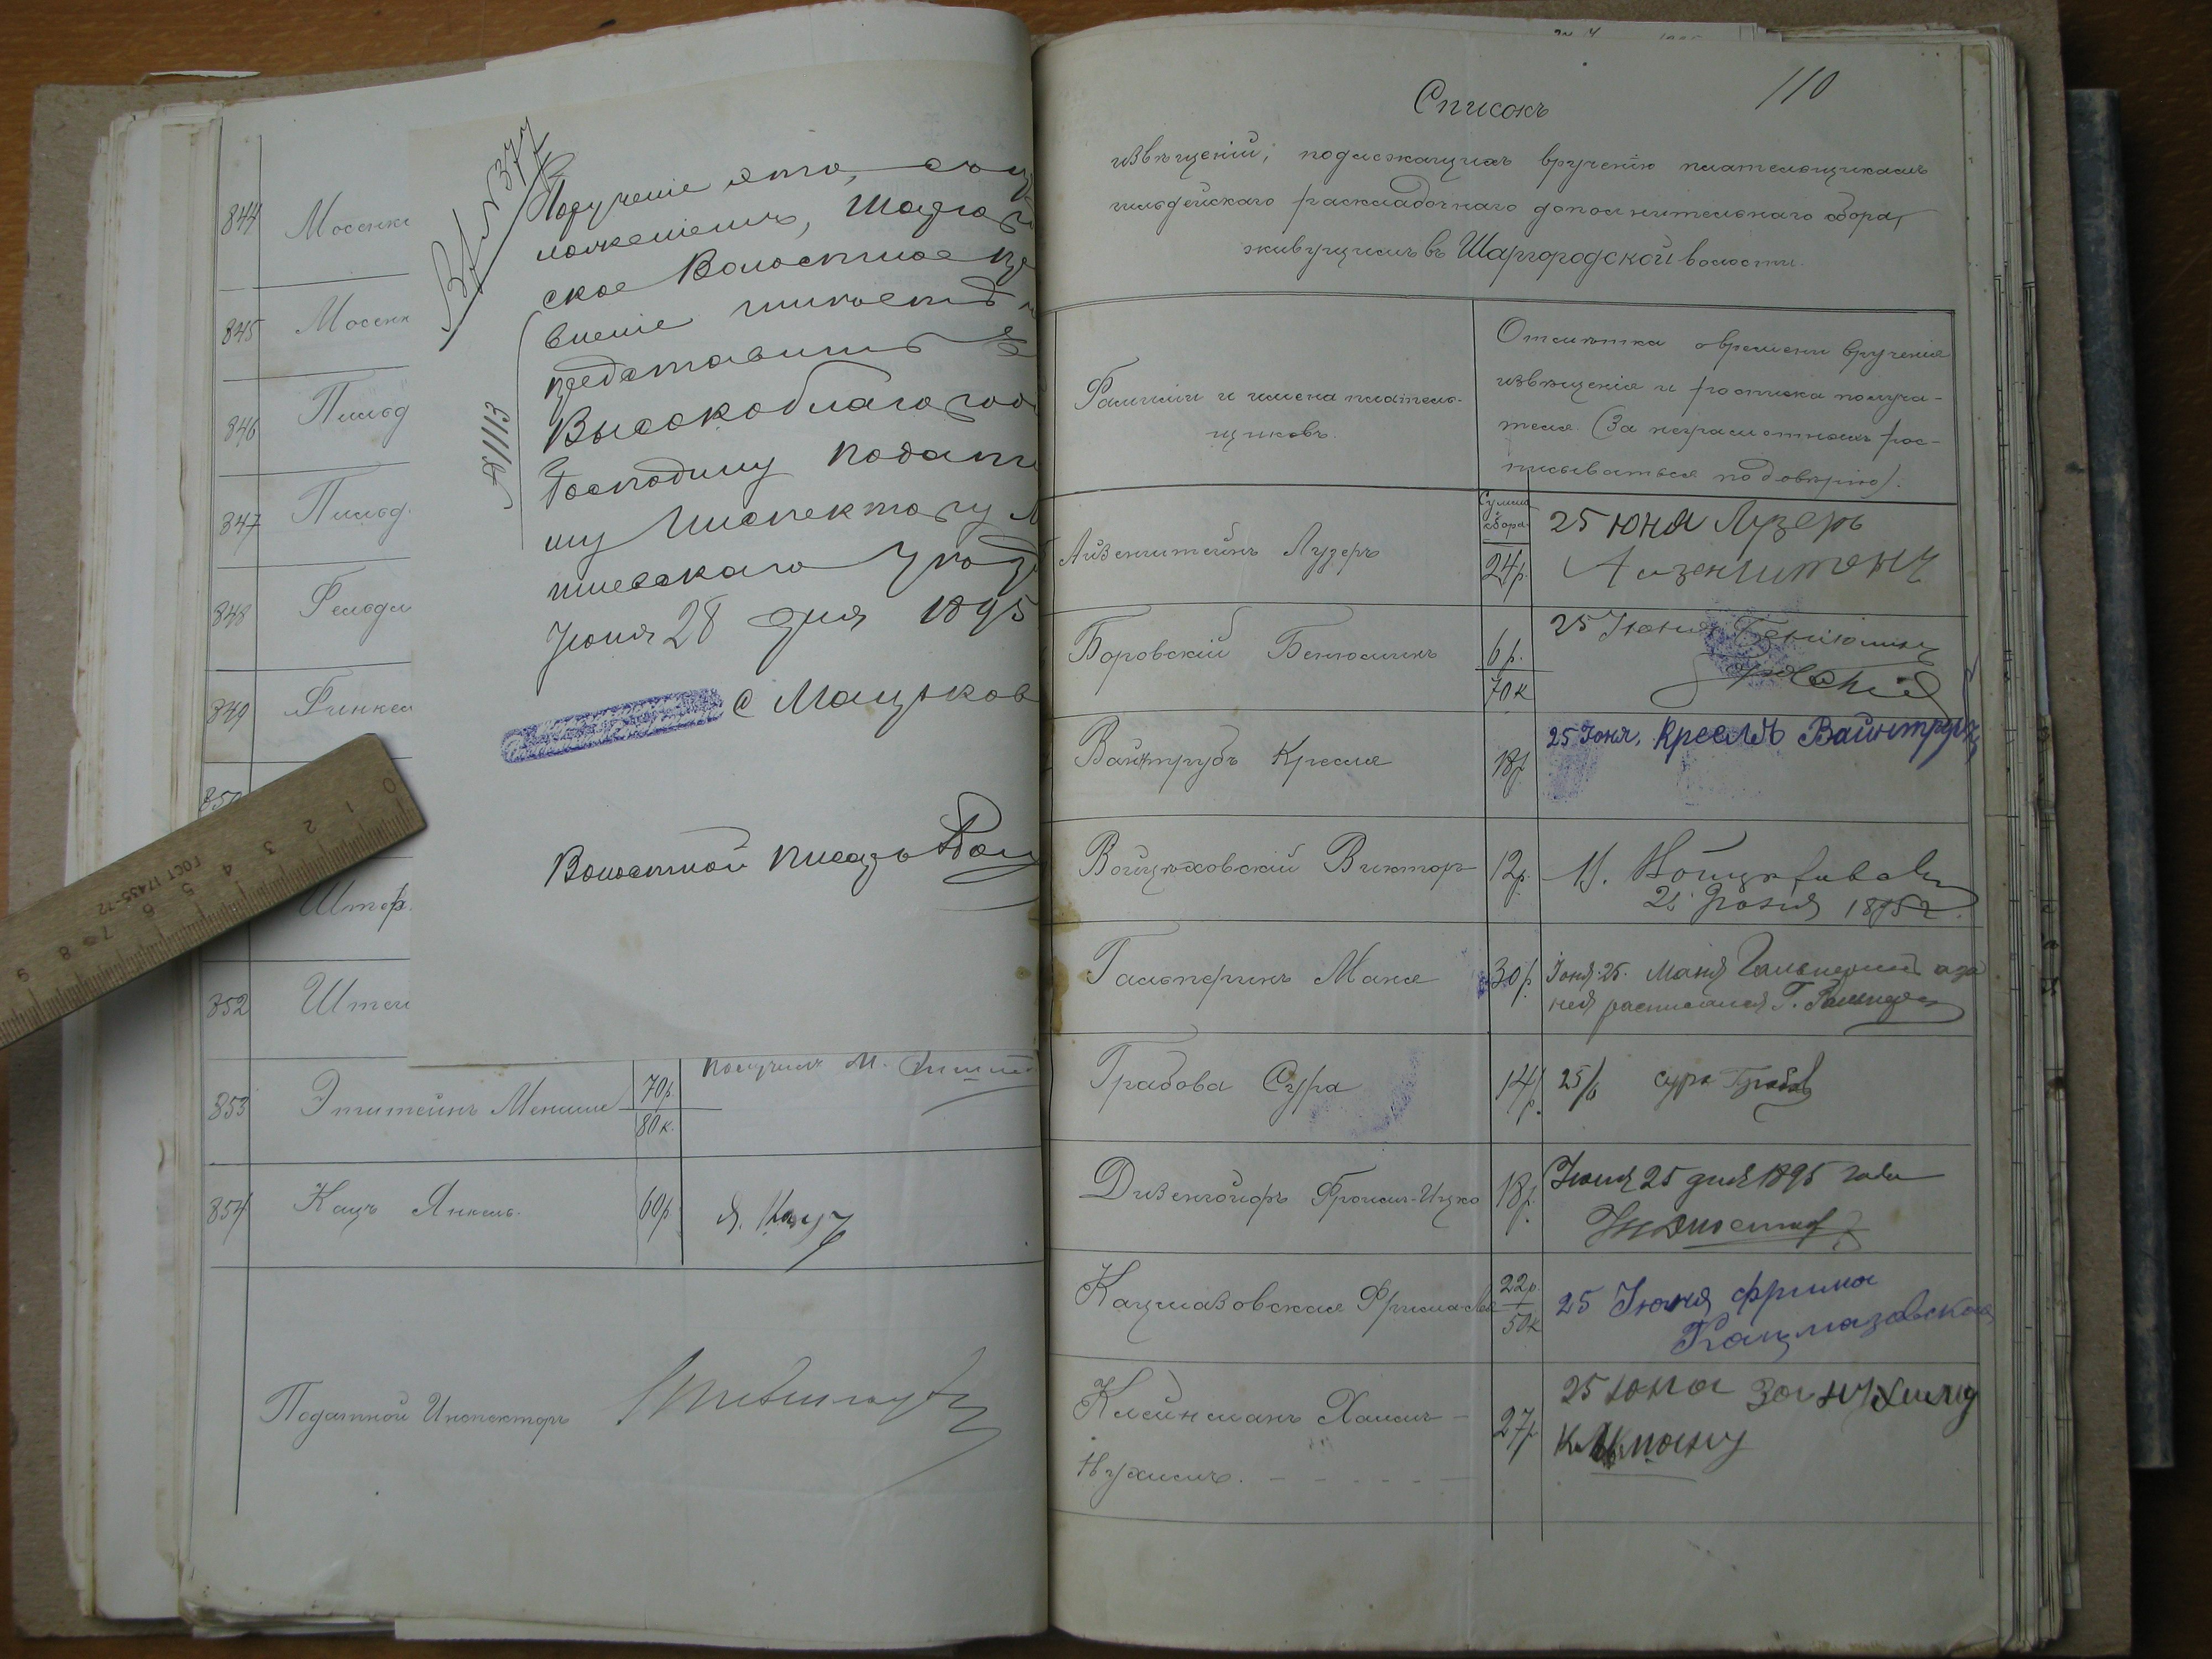 844 Мосенк
845 Мосенк
846 Пильд
847 Пильд
848 Фельдм
849 Финкел
850
Штеф
852 Штей
853 Этштейнъ Менаше 70р. 80к.
получилъ М.
854 Кацъ Янкель. 60р. Я. Кацъ
Податной Инспекторъ
№ 377
№ 1113
Порученіе это, съ
ложеніемъ, Шарго
ское Волостное Пра
вленіе имѣетъ
представить Его
Высокоблагород
Господину Податн
му Инспектору М
гилевскаго Уѣзд
Іюня 28 дня 1895
С Мацьков
Волостной Писарь
0 1 2 3 4 5 6 7 8 9
ГОСТ 17435-72
110
Списокъ
извѣщеній, подлежащихъ врученію плательщикамъ
гильдейскаго раскладочнаго дополнительнаго сбора,
живущимъ въ Шаргородской волости.
Фамиліи и имена платель-
щиковъ.
Отмѣтка о времени врученія
извѣщенія и росписка получа-
теля. (За неграмотныхъ рос-
писываться по довѣрію).
Сумма сбора
Айзенштейнъ Лузеръ 24р. 25 юня Лузеръ
Боровскій Бенюминъ 6р. 70к 25 Іюня Бениюминъ
Вайнтрубъ Кресля 18р 25 Іюня, Кресля Вайнтрубъ
Войцѣховскій Викторъ 12р.
25 Іюня 1895 г.
Гальперинъ Маня 30р. Іюня 25. Маня Гальперинъ а за
нея росписался Г.
Грабова Сура 14р. 25/6 Сура Грабова
Дизенгойфъ Фроим-Ицко 18р. Іюня 25 дня 1895 года
Кацмазовская Фрима-Лея 22р. 50к 25 Іюня Фрима
Кацмазовская
Клейнманъ Хаимъ - 27р. 25 юня За
Нухимъ. - - - - -